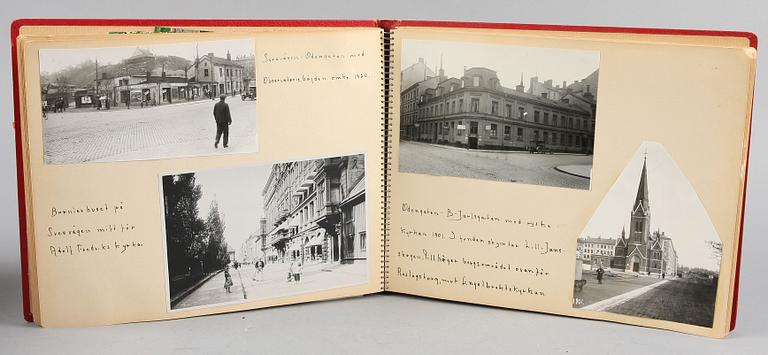 Sveavägen-Odengatan med
Observatoriehöjden omkr. 1920.
Bonnierhuset på
Sveavägen mitt för
Adolf Fredriks kyrka.
Odengatan - B-Jarlsgatan med ryska
kyrkan 1901. I fonden skymtar Lill-Jans-
skogen. Till höger bergsområdet ovanför
Roslagstorg, mot Engelbrektskyrkan
1901.